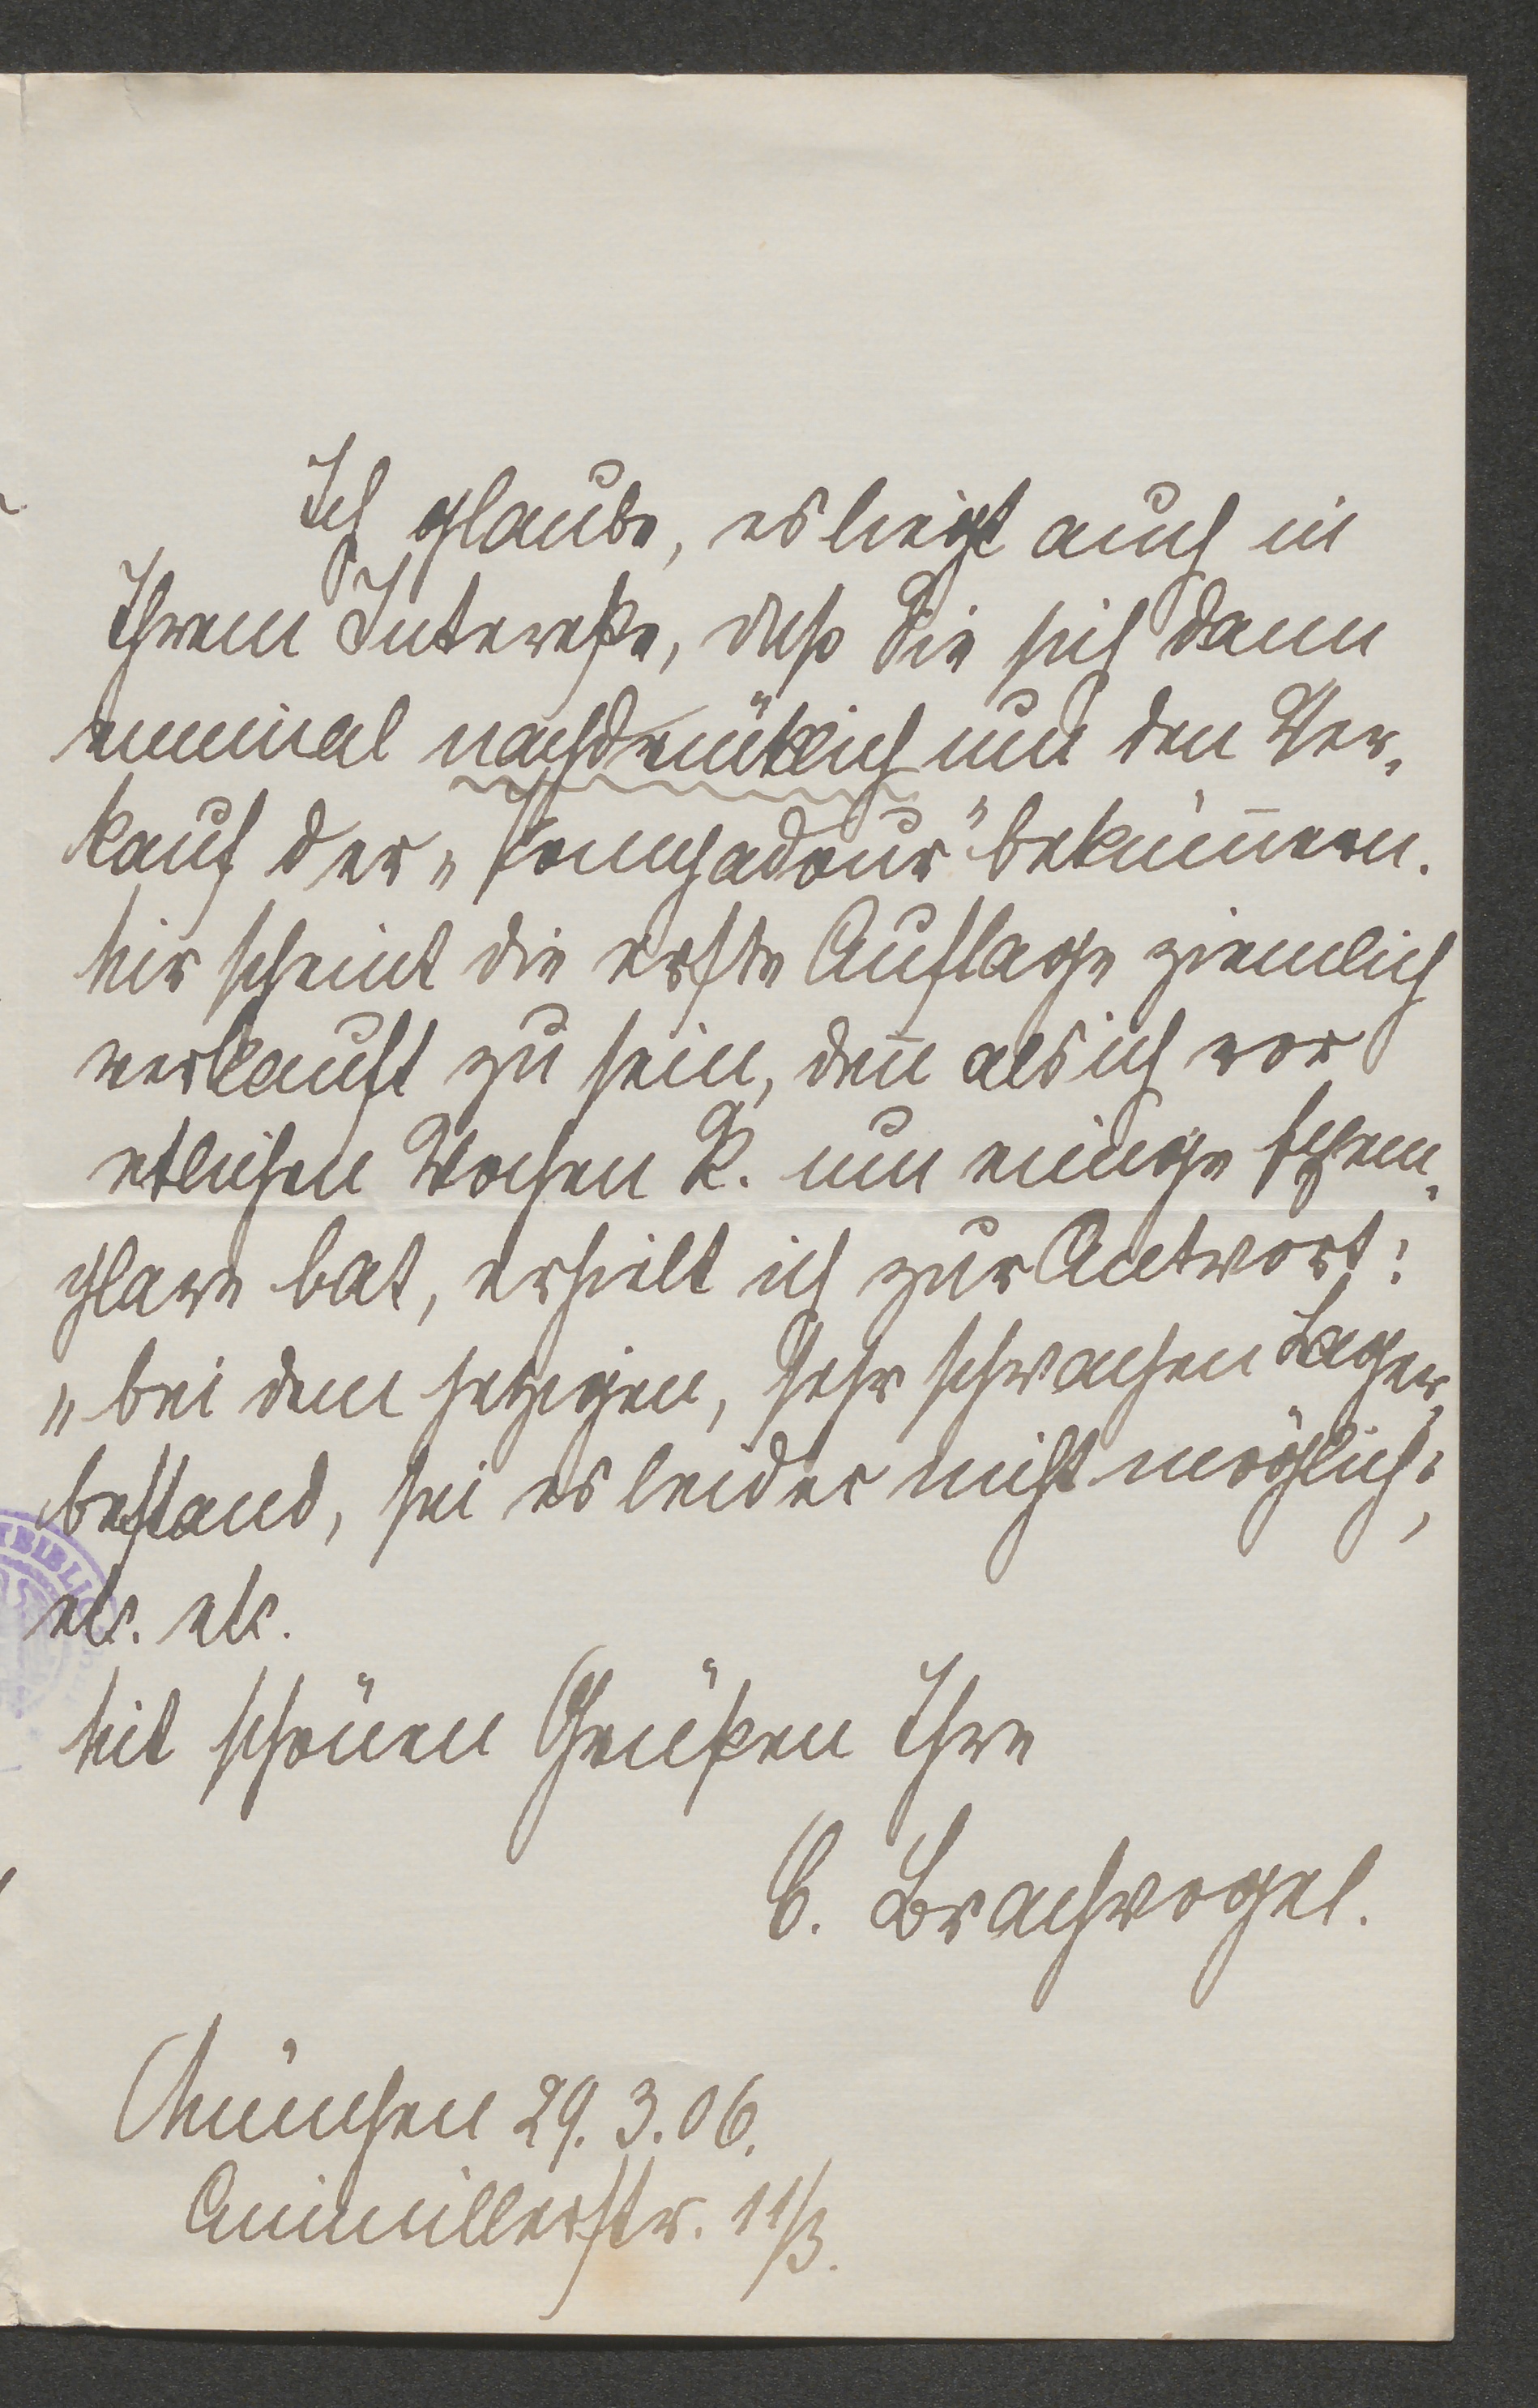 Ich glaube, es liegt auch in
Ihrem Interesse, daß Sie sich dann
einmal nachdrücklich um den Ver-
kauf der „Pompadour" bekümern.
Mir scheint die erste Auflage ziemlich
verkauft zu sein, den als ich vor
etlichen Wochen R. um einige Exem-
plare bat, erhielt ich zur Antwort:
„bei dem jetzigen, sehr schwachen Lager-
bestand, sei es leider nicht möglich",
etc. etc.
Mit schönen Grüßen Ihre
C. Brachvogel.
München 29. 3. 06.
Ainmillerstr. 11/3.